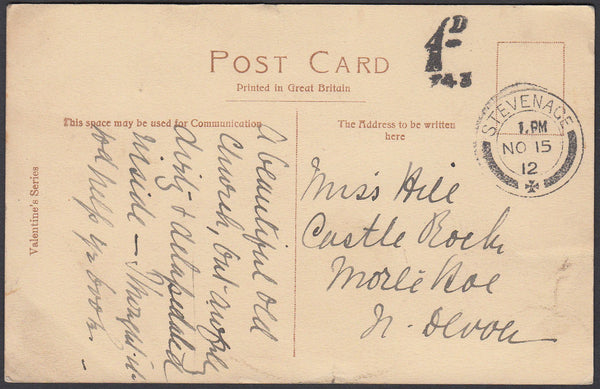 POST CARD
Printed in Great Britain
This space may be used for Communication
The Address to be written
here
Valentine's Series
1D
743
STEVENAGE
1.PM
NO 15
12
A beautiful old
Church, but awfully
dirty &
inside — Thought it
help yr book —
Miss Hill
Castle Rock
Morte Hoe
N. Devon